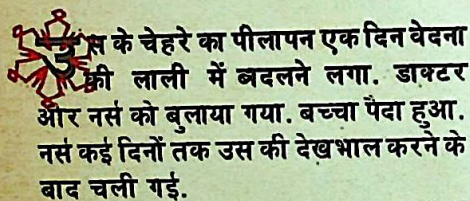 उस के चेहरे का पीलापन एक दिन वेदना
की लाली में बदलने लगा. डाक्टर
और नर्स को बुलाया गया. बच्चा पैदा हुआ.
नर्स कई दिनों तक उस की देखभाल करने के
बाद चली गई.